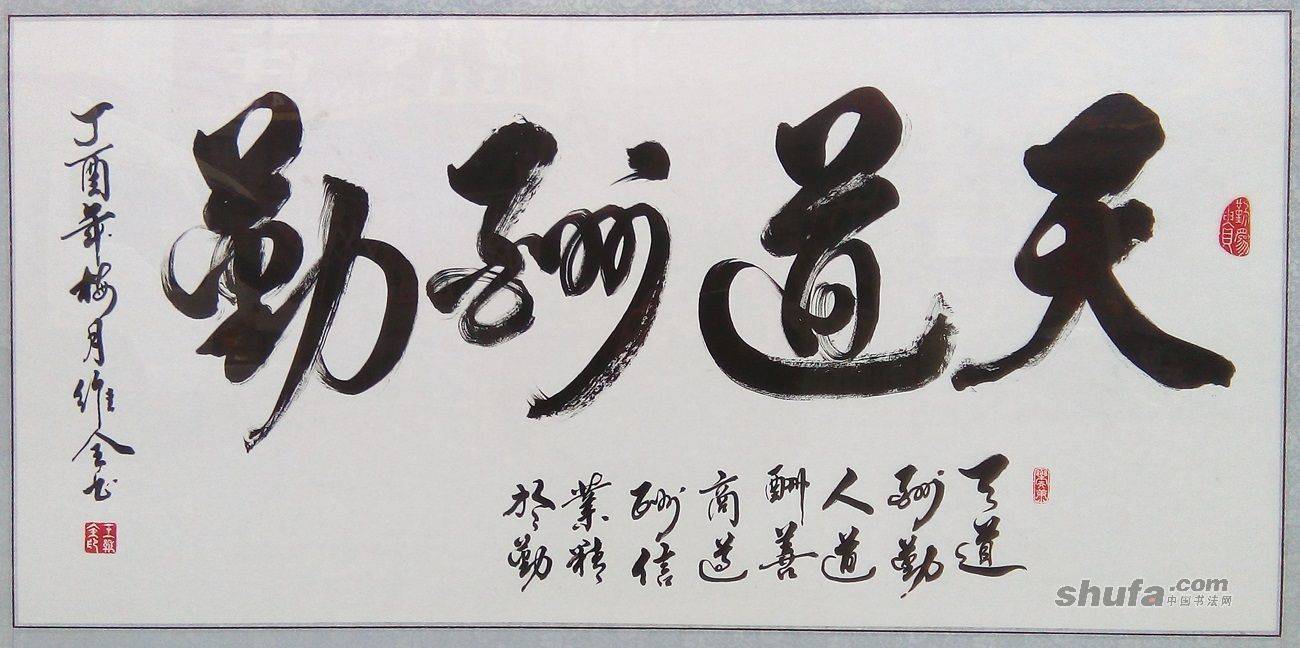 天道酬勤
天道
酬勤
人道
酬善
商道
酬信
業精
於勤
丁酉年梅月維全书
王維
全印
shufa.com
中国书法网